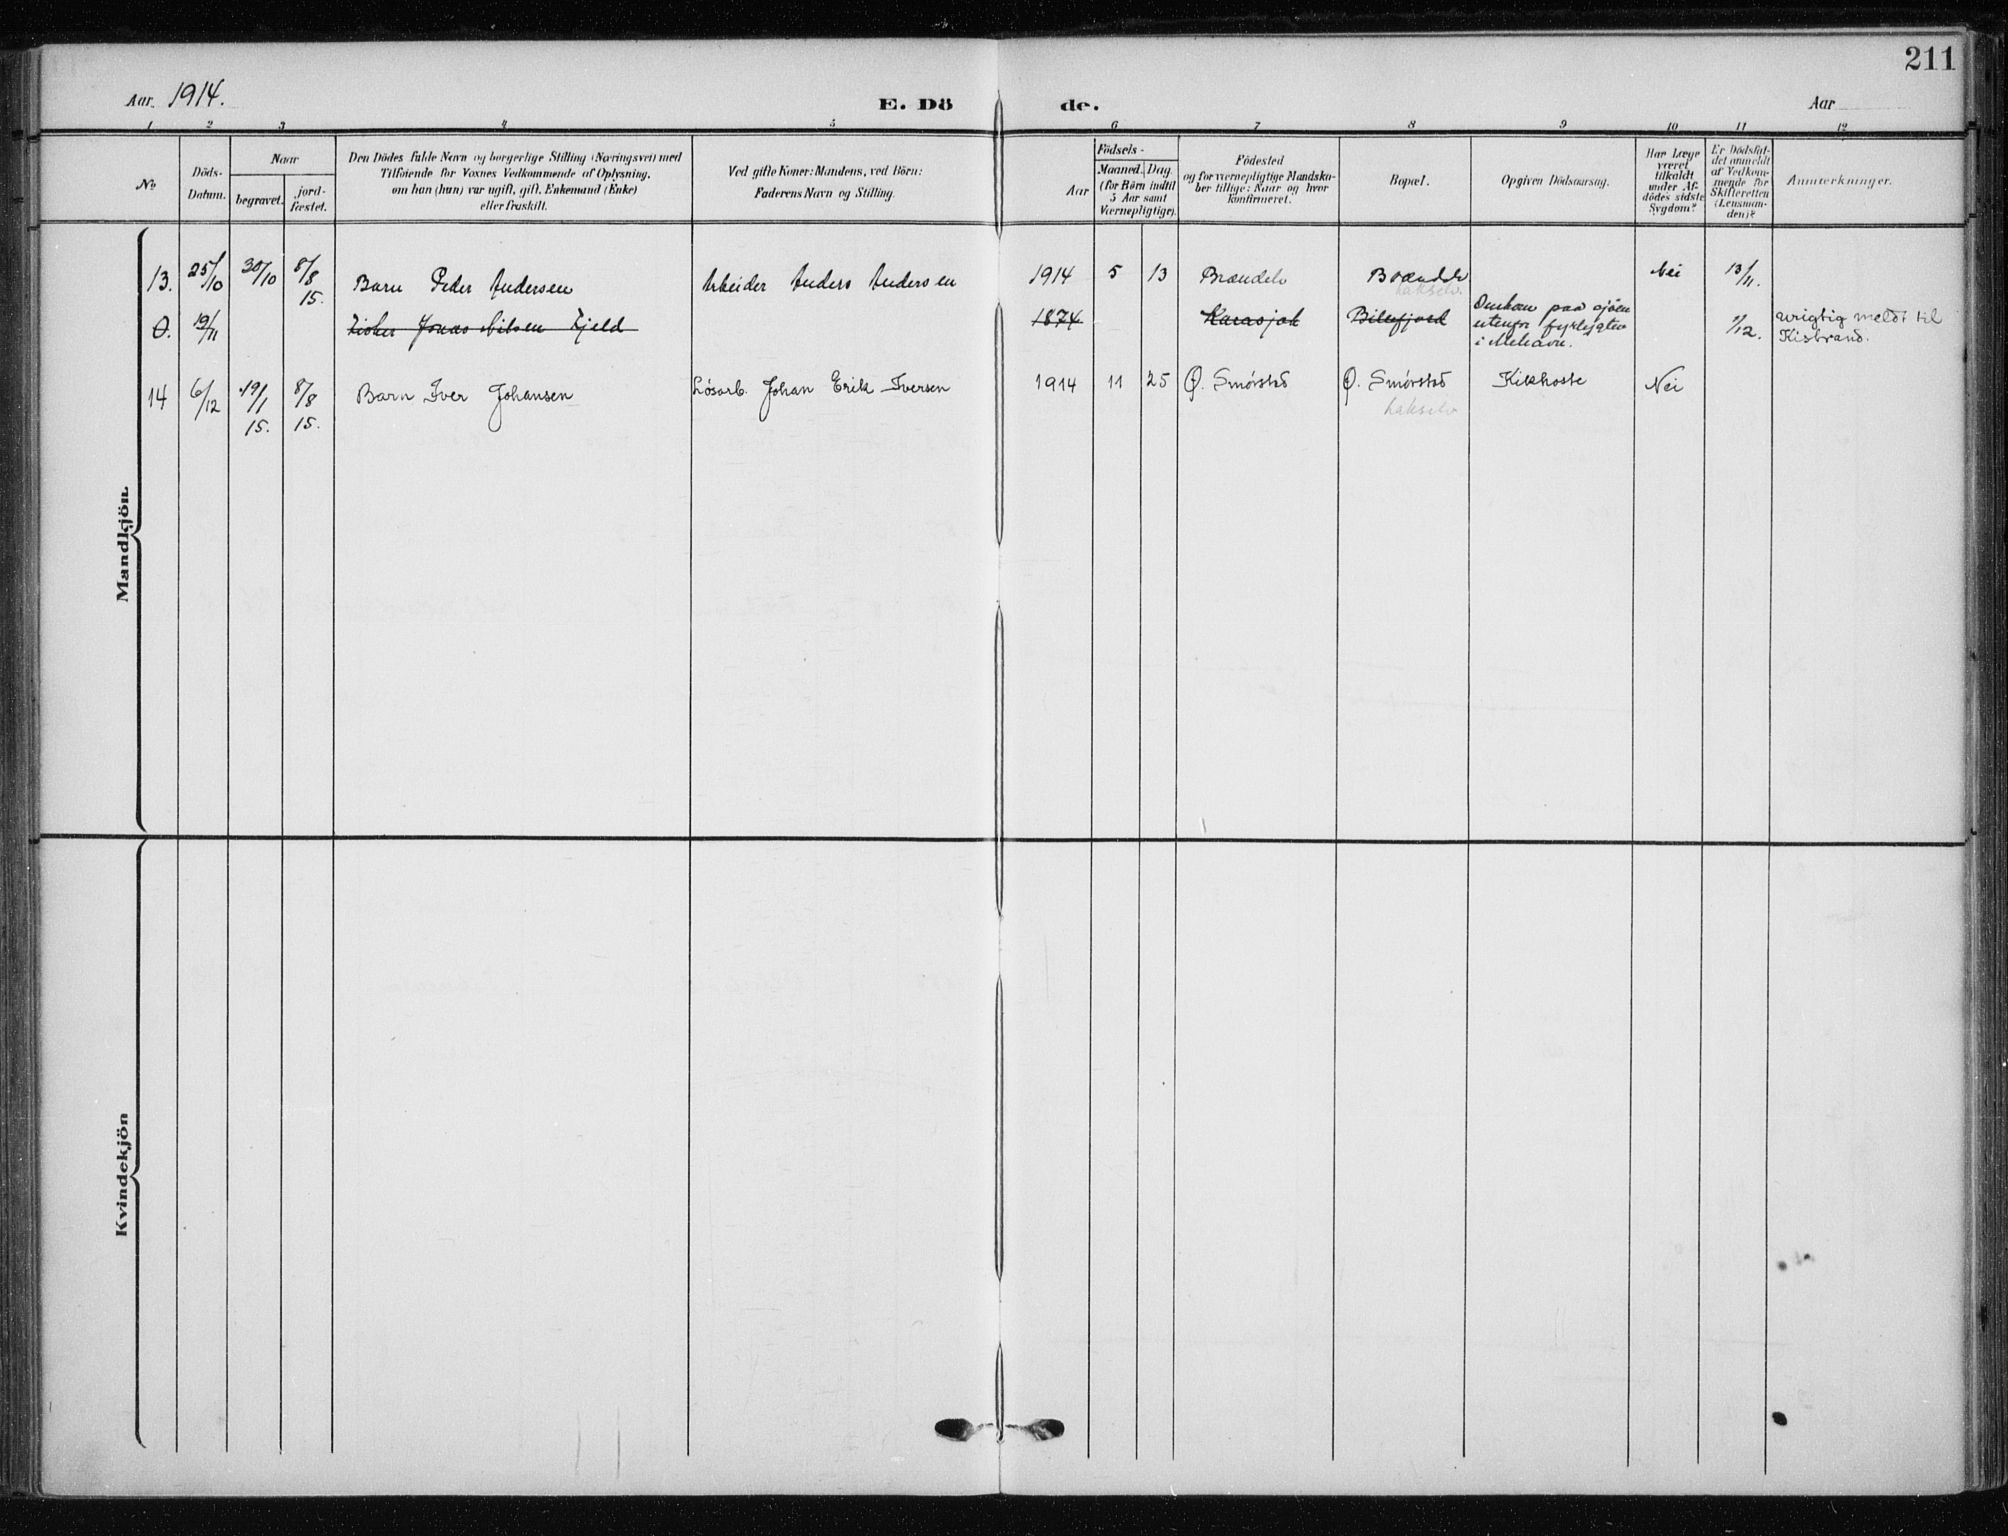 211
Aar 1914.
E. Dö de.
Aar
1 2 3 4 5 6 7 8 9 10 11 12
No
Döds-
Datum.
Naar
begravet.
jord-
fæstet.
Den Dödes fulde Navn og borgerlige Stilling (Næringsvei) med
Tilföiende for Voxnes Vedkommende af Oplysning,
om han (hun) var ugift, gift, Enkemand (Enke)
eller fraskilt.
Ved gifte Koner: Mandens, ved Börn:
Faderens Navn og Stilling.
Födsels-
Aar
Maaned. Dag.
(for Börn indtil
5 Aar samt
Værnepligtige).
Födested
og for værnepligtige Mandska-
ber tillige: Naar og hvor
konfirmeret.
Bopæl.
Opgiven Dödsaarsag.
Har Læge
været
tilkaldt
under Af-
dödes sidste
Sygdom?
Er Dödsfal-
det anmeldt
af Vedkom-
mende for
Skifteretten
(Lensman-
den)?
Anmerkninger.
Mandkjön.
13. 25/10 30/10 8/8 15. Barn Peder Andersen Arbeider Anders Andersen 1914 5 13 Brændelv Brændelv Nei 13/11.
Lakselv.
0. 19/11 Fisker Jonas Nilsen Fjeld 1874 Karasjok Billefjord Omkom paa sjøen
utenfor fyrlygten
i Mehavn.
1/12. urigtig meldt til
Kistrand.
14 6/12 19/1 15. 8/8 15. Barn Iver Johansen Løsarb. Johan Erik Iversen 1914 11 25 Ø. Smørstad Ø. Smørstad Kikhoste Nei
Lakselv
Kvindekjön